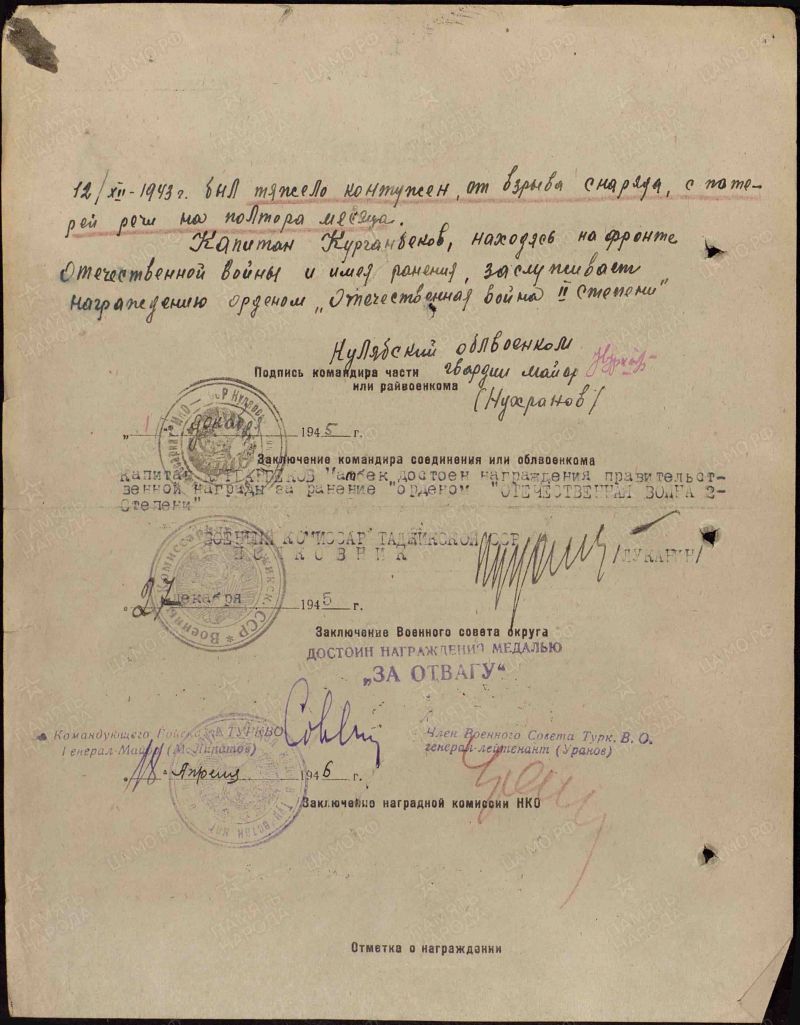 12/XII-1943 г. был тяжело контужен, от взрыва снаряда, с поте-
рей речи на полтора месяца.
Капитан Курганбеков, находясь на фронте
Отечественной войны и имея ранения, заслуживает
награждению орденом „Отечественная война II степени"
Кулябский облвоенком
Подпись командира части гвардии майор
или райвоенкома
(Нухранов)
„ 1 " декабря 1945 г.
Заключение командира соединения или облвоенкома
Капитан достоин награждения правительст-
венной награды за ранение "орденом "ОТЕЧЕСТВЕННАЯ ВОЙНА 2-
Степени"
ВОЕННЫЙ КОМИССАР ТАДЖИКСКОЙ ССР
ПОЛКОВНИК /ЛУКАНИН/
„27" декабря 1945 г.
Заключение Военного совета округа
ДОСТОИН НАГРАЖДЕНИЯ МЕДАЛЬЮ
„ЗА ОТВАГУ"
Командующего Войсками ТУРКВО
Генерал-Майор (М. Липатов)
Член Военного Совета Турк. В. О.
генерал-лейтенант (Уранов)
„18" Апреля 1946 г.
Заключение наградной комиссии НКО
Отметка о награждении
ПАМЯТЬ НАРОДА
ЦАМО.РФ